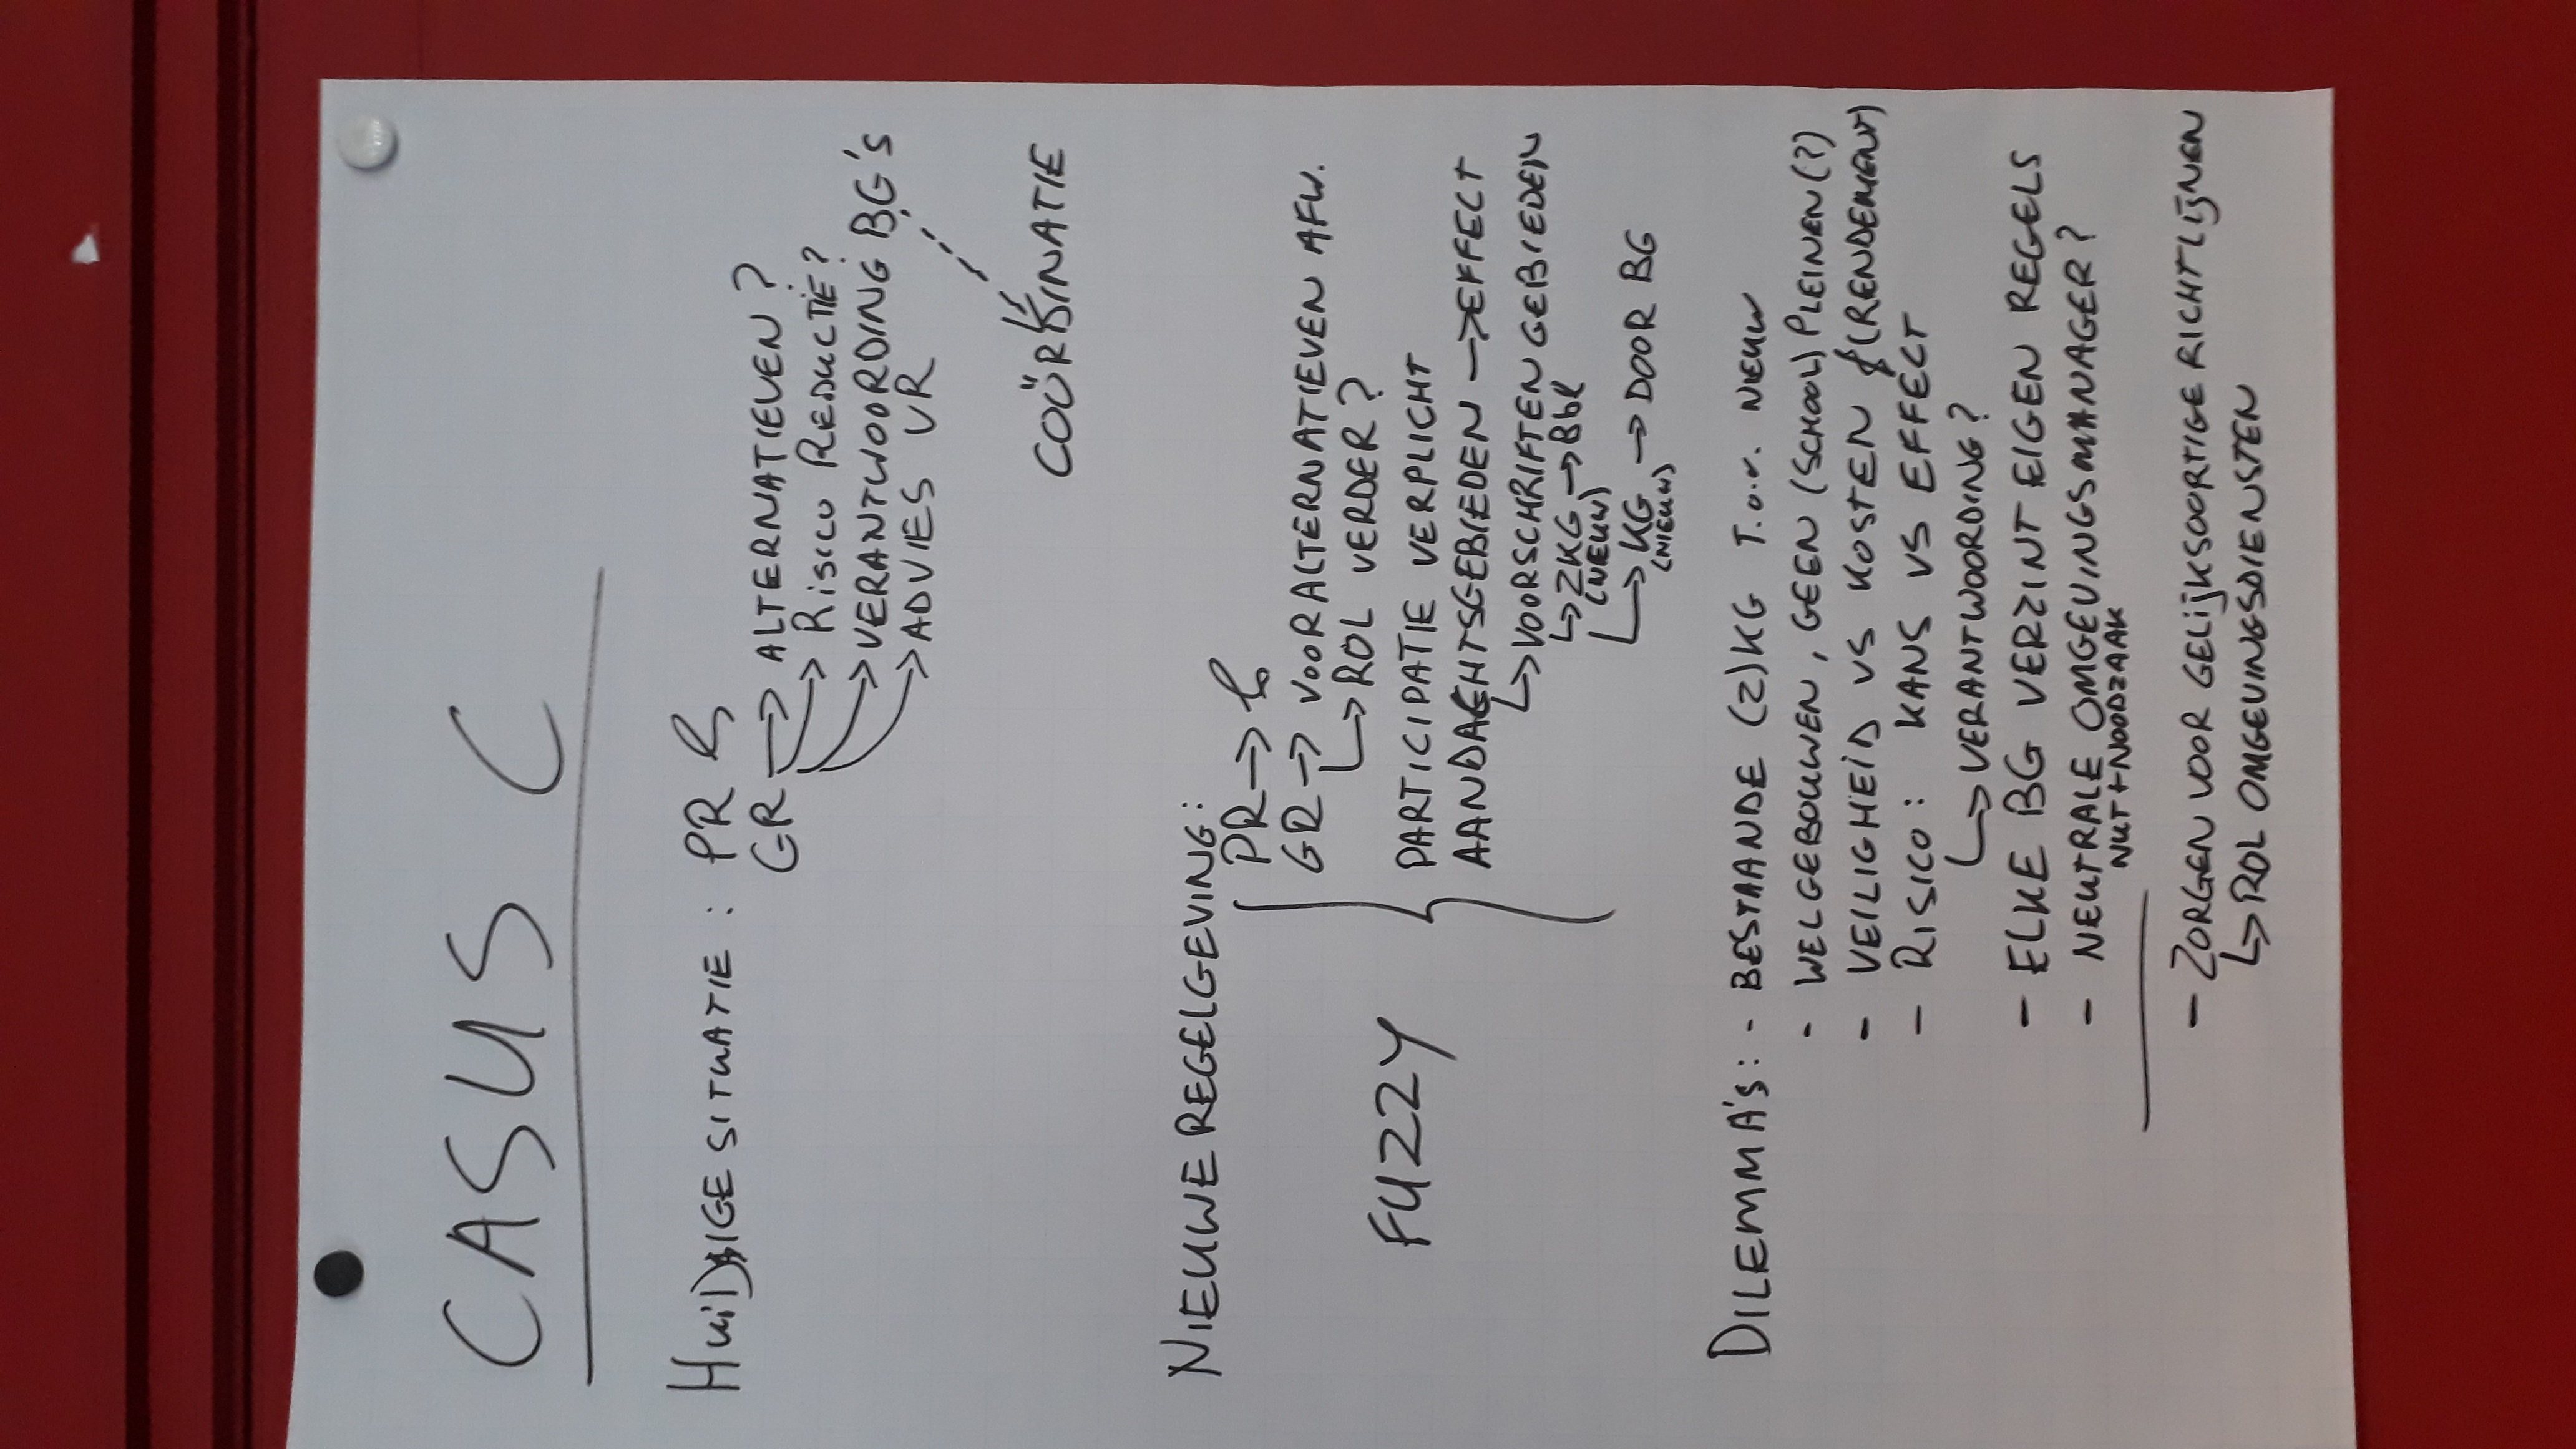 CASUS C
HUIDIGE SITUATIE : PR
GR → ALTERNATIEVEN?
→ RISICO REDUCTIE?
→ VERANTWOORDING BG'S
→ ADVIES VR
COÖRDINATIE
NIEUWE REGELGEVING:
PR →
GR → VOORALTERNATIEVEN AFW.
↳ ROL VERDER?
FUZZY
PARTICIPATIE VERPLICHT
AANDACHTSGEBIEDEN → EFFECT
↳ VOORSCHRIFTENGEBIEDEN
↳ ZKG → Bbl
(NIEUW)
↳ KG → DOOR BG
(NIEUW)
DILEMMA'S: - BESTAANDE (Z)KG T.o.v. NIEUW
- WELGEBOUWEN, GEEN (SCHOOL) PLEINEN (?)
- VEILIGHEID VS KOSTEN (RENDEMENT)
- RISICO: KANS VS EFFECT
↳ VERANTWOORDING?
- ELKE BG VERZINT EIGEN REGELS
- NEUTRALE OMGEVINGSMANAGER?
NUT + NOODZAAK
- ZORGEN VOOR GELIJKSOORTIGE RICHTLIJNEN
↳ ROL OMGEVINGSDIENSTEN